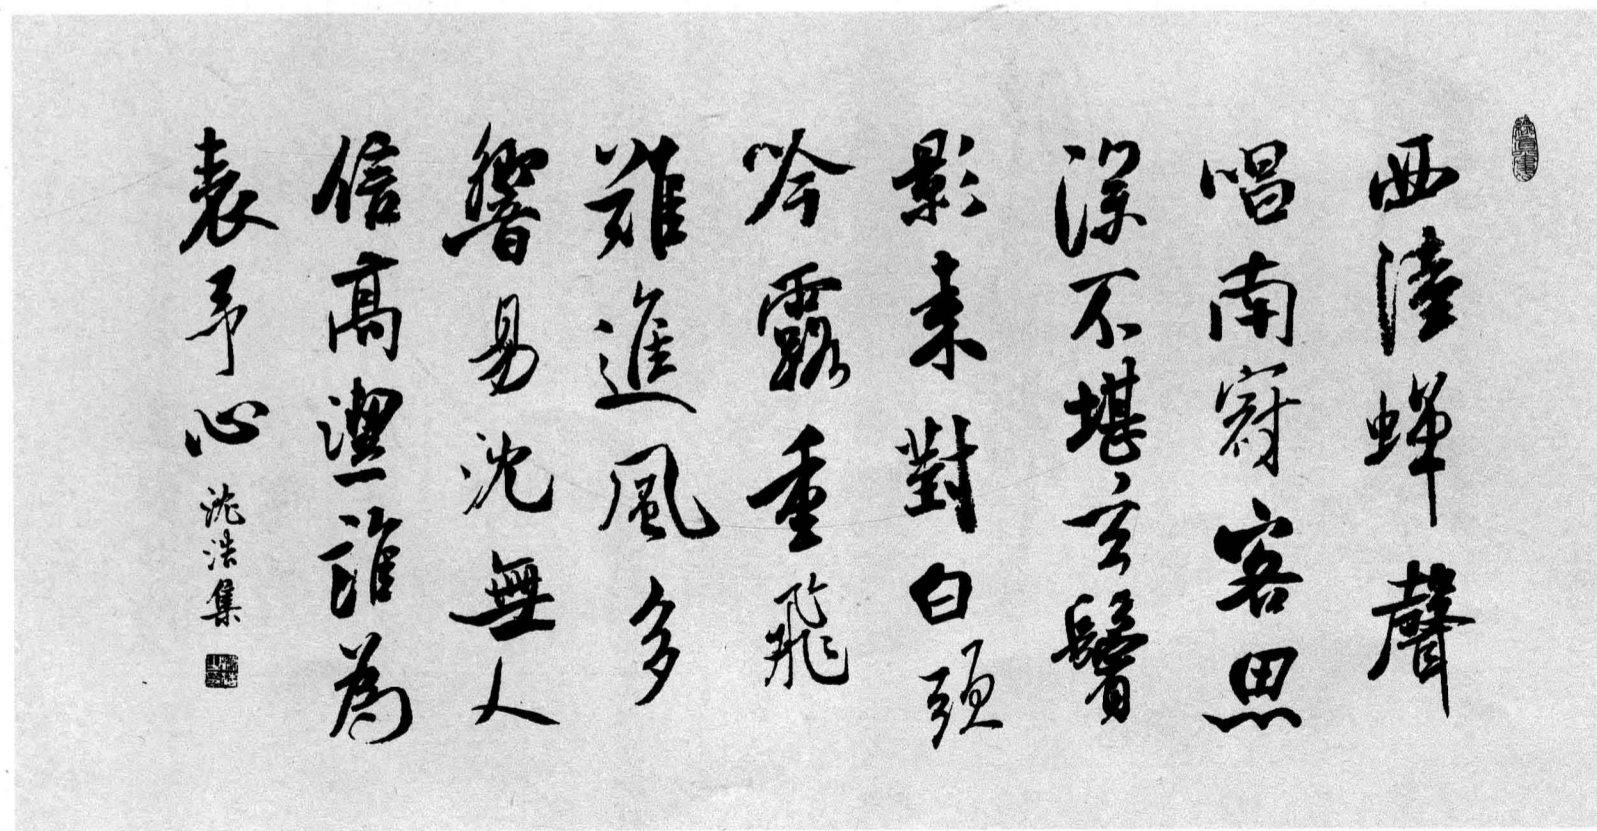 西陸蟬聲
唱南冠客思
深不堪玄鬢
影來對白頭
吟露重飛
難進風多
響易沈無人
信高潔誰為
表予心
沈浩集